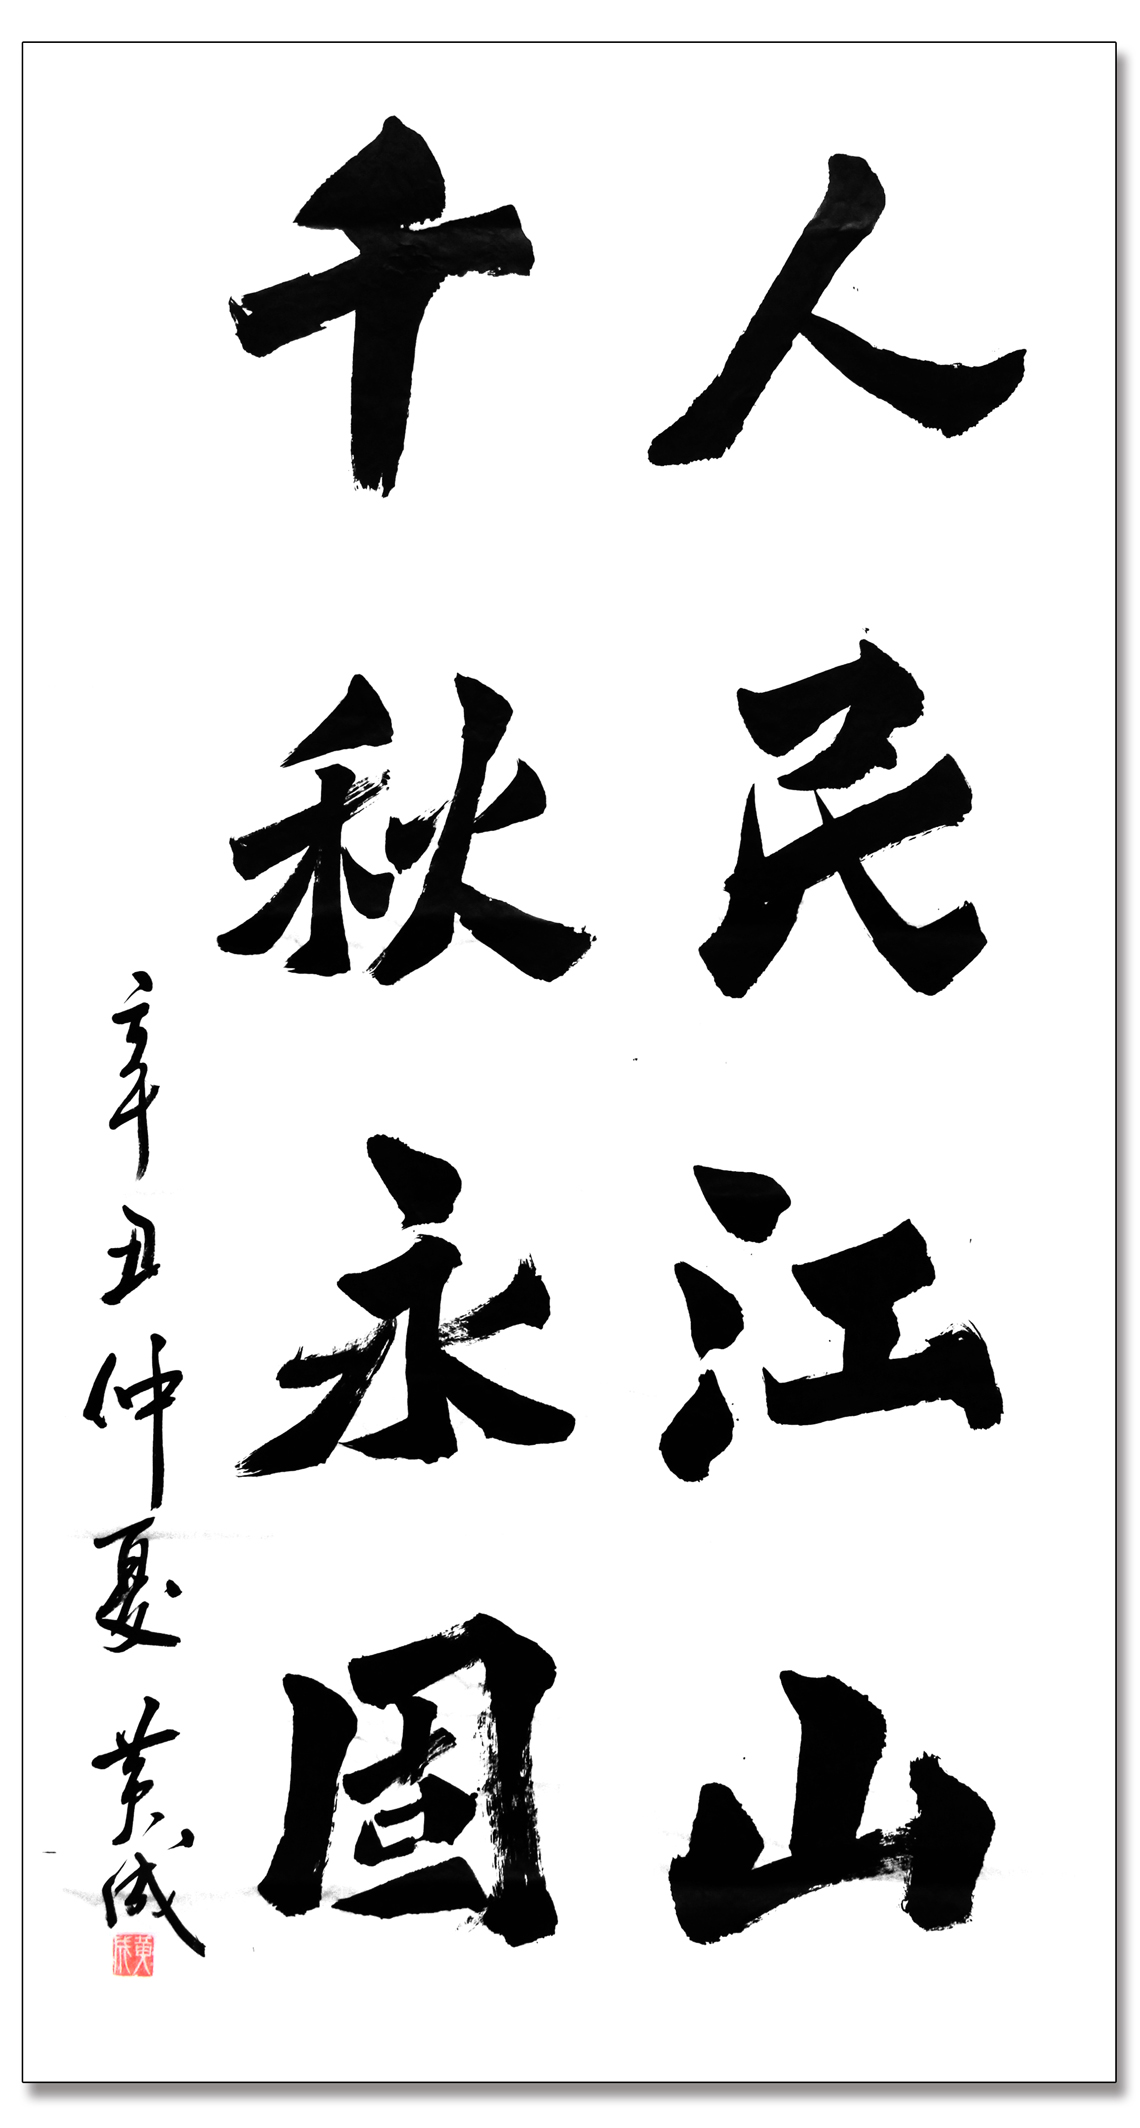 人民江山
千秋永固
辛丑仲夏黄成
黄成